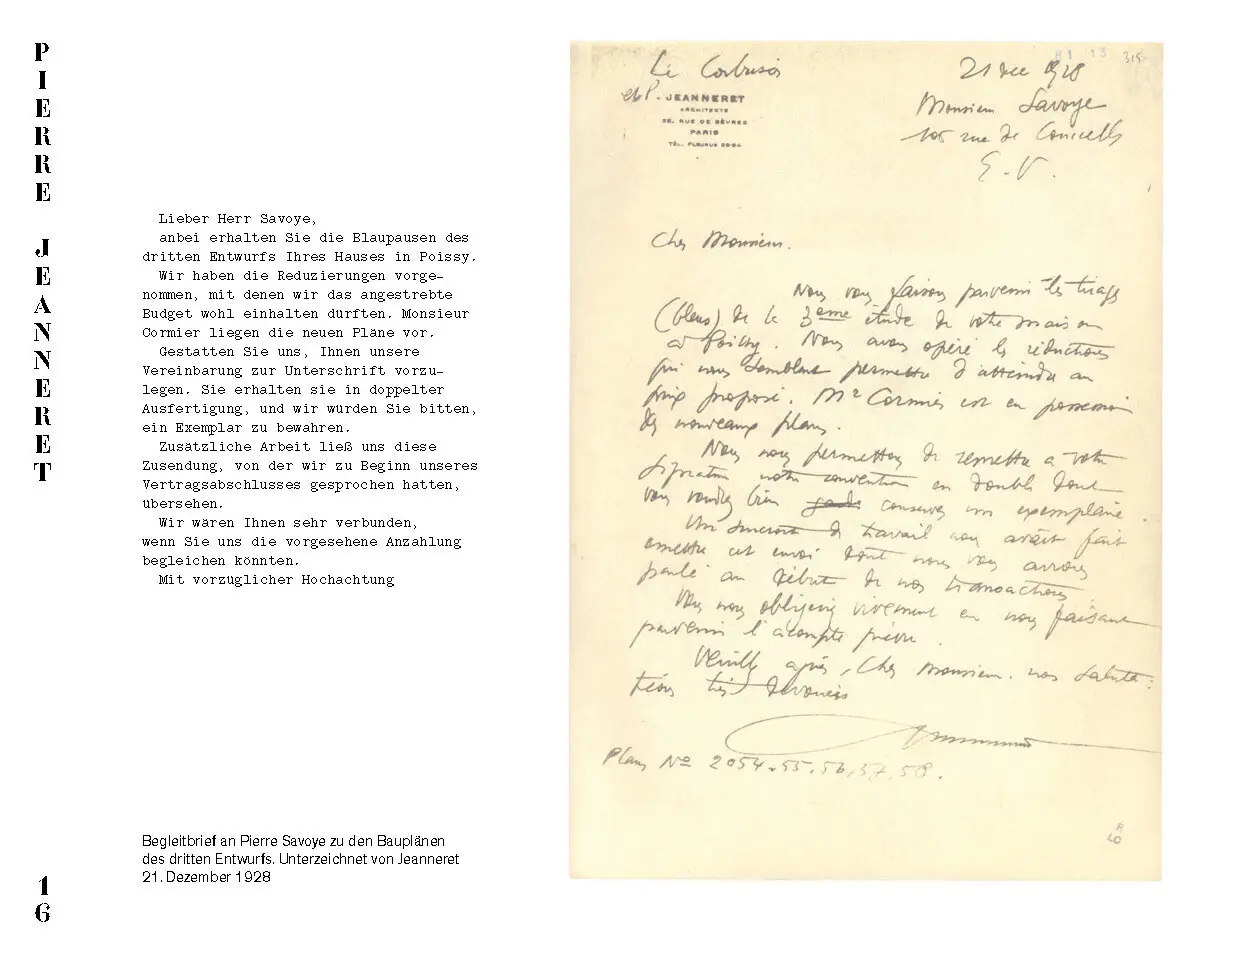 PIERRE JEANNERET
Lieber Herr Savoye,
anbei erhalten Sie die Blaupausen des
dritten Entwurfs Ihres Hauses in Poissy.
Wir haben die Reduzierungen vorge-
nommen, mit denen wir das angestrebte
Budget wohl einhalten durften. Monsieur
Cormier liegen die neuen Pläne vor.
Gestatten Sie uns, Ihnen unsere
Vereinbarung zur Unterschrift vorzu-
legen. Sie erhalten sie in doppelter
Ausfertigung, und wir wurden Sie bitten,
ein Exemplar zu bewahren.
Zusätzliche Arbeit ließ uns diese
Zusendung, von der wir zu Beginn unseres
Vertragsabschlusses gesprochen hatten,
ubersehen.
Wir wären Ihnen sehr verbunden,
wenn Sie uns die vorgesehene Anzahlung
begleichen könnten.
Mit vorzuglicher Hochachtung
Begleitbrief an Pierre Savoye zu den Bauplänen
des dritten Entwurfs. Unterzeichnet von Jeanneret
21. Dezember 1928
16
Le Corbusier
et P. JEANNERET
ARCHITECTE
35, RUE DE SÈVRES
PARIS
21 dec 1928
Monsieur Savoye
105 rue de Courcelles
E.V.
Cher Monsieur.
Nous vous faisons parvenir les tirages
(bleus) de la 3eme étude de votre maison
à Poissy. Nous avons opéré les réductions
qui nous semblent permettre d'atteindre au
prix proposé. Mr Cormier est en possession
des nouveaux plans.
Nous nous permettons de remettre à votre
signature notre convention en double dont
vous voudrez bien garder conserver un exemplaire.
Un surcroit de travail nous avait fait
omettre cet envoi dont nous vous avions
parlé au début de nos transactions.
Vous nous obligeriez vivement en nous faisant
parvenir l'acompte prévu.
Veuillez agréer, Cher Monsieur. nos saluta-
tions très dévouées
Plans No 2054.55.56,57.58.